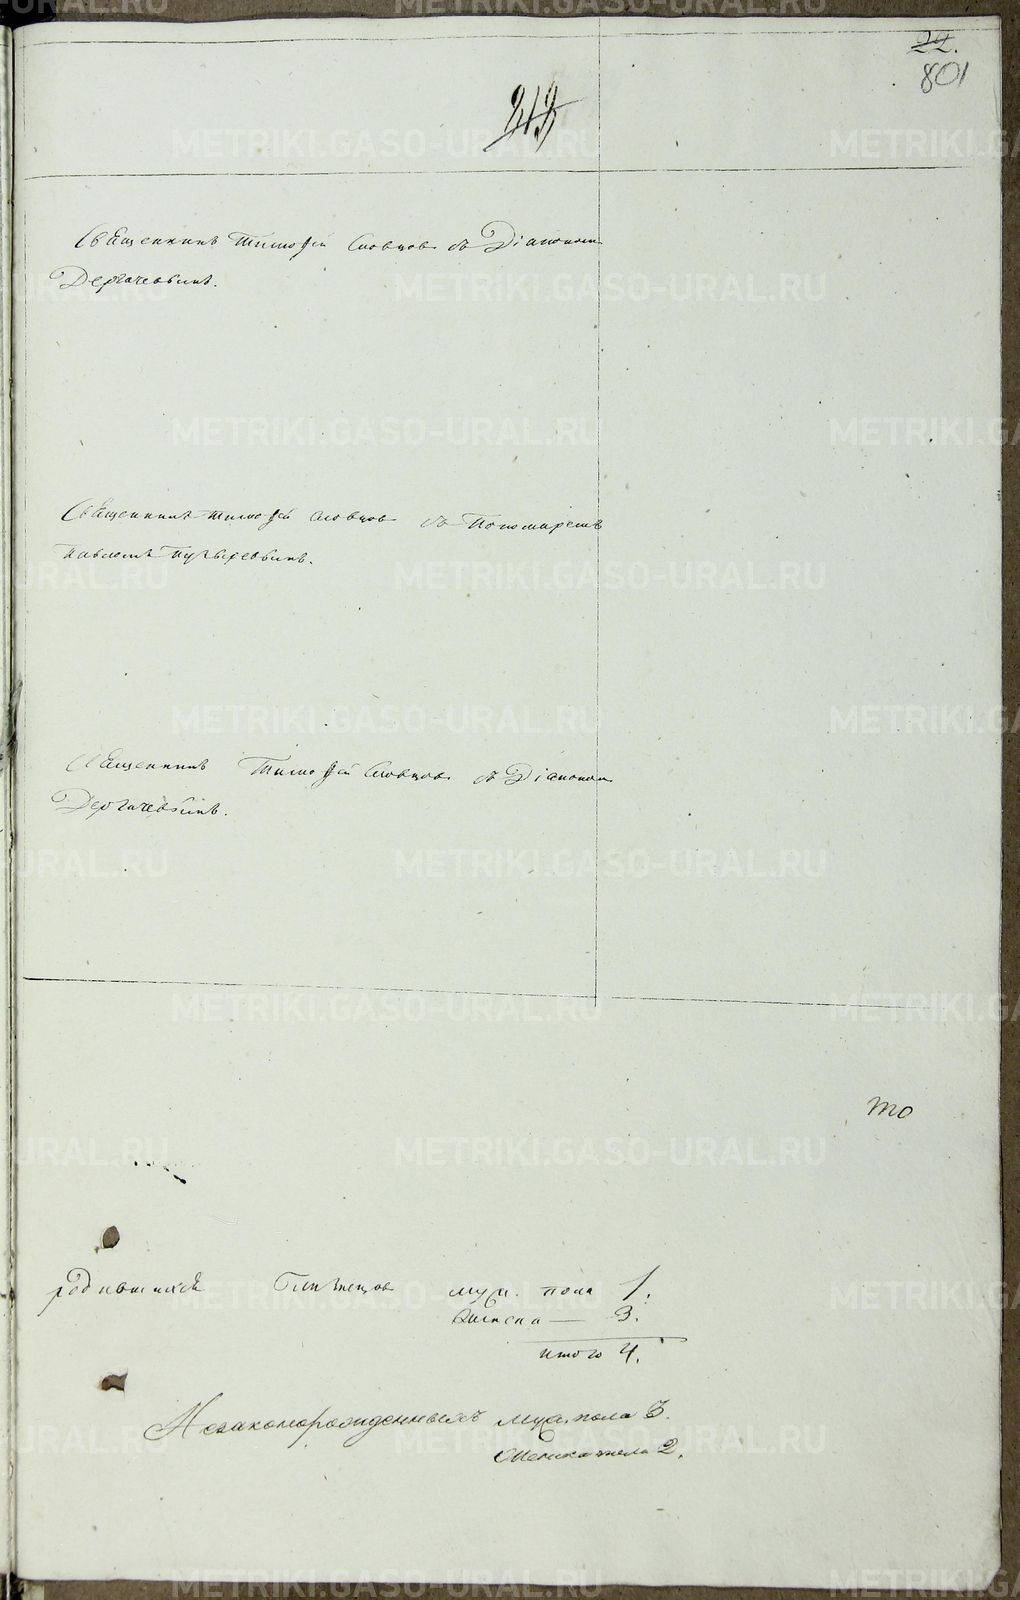 22.
801
212
Священникъ Тимофей Словцов съ Дiакономъ
Дергачевымъ.
Священникъ Тимофей Словцов съ Пономаремъ
Павломъ Пузыревымъ.
Священникъ Тимофей Словцов съ Дiакономъ
Дергачевымъ.
то
родившихся близнецов муж. пола 1.
женска — 3.
итого 4.
Незаконорожденныхъ муж. пола 3.
Женска пола 2.
METRIKI.GASO-URAL.RU